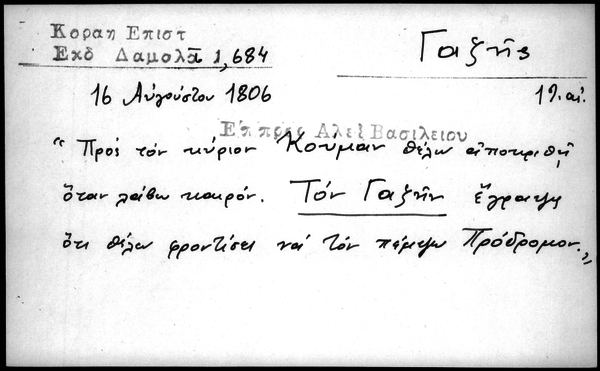 Κοραη Επιστ
Εκδ Δαμαλᾶ 1,684
Γαζῆς
16 Αὐγούστου 1806
19. αἰ.
Επ προς Αλεξ Βασιλειου
"Πρὸς τὸν κύριον Κουμᾶν θέλω ἀποκριθῆ,
ὅταν λάβω καιρόν. Τὸν Γαζῆν ἔγραψα
ὅτι θέλω φροντίσει νὰ τὸν πέμψω Πρόδρομον."